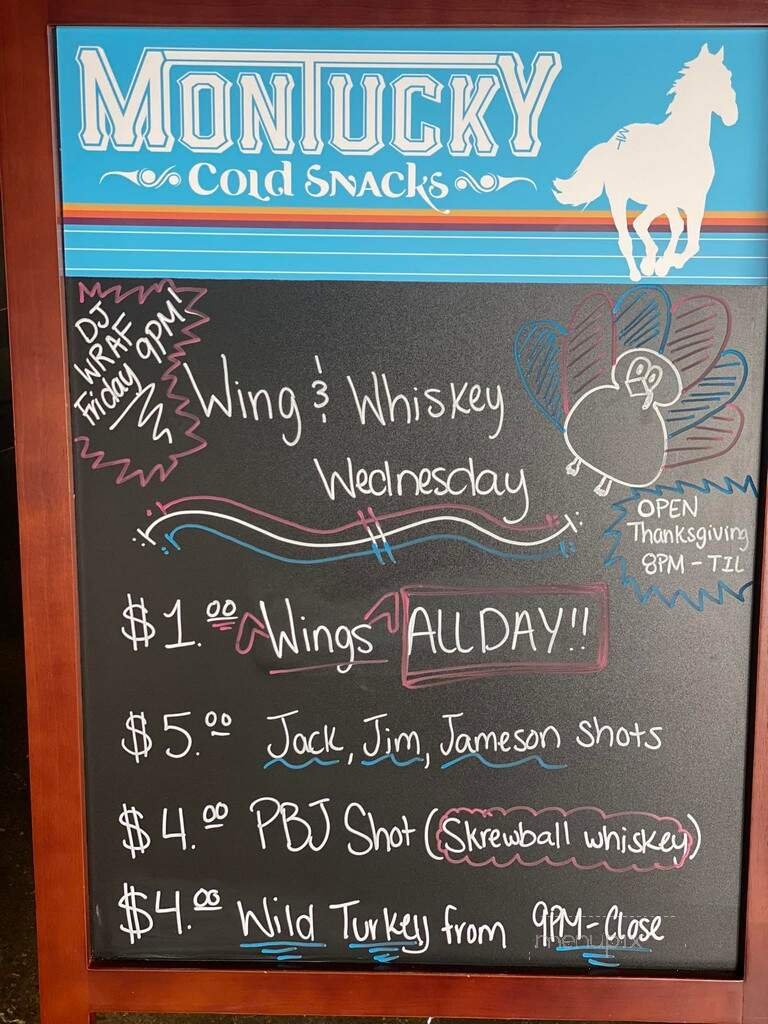 MONTUCKY
COLD SNACKS
DJ
WRAF
Friday 9PM!
Wing & Whiskey
Wednesday
OPEN
Thanksgiving
8PM - TIL
$1.00 Wings ALL DAY!!
$5.00 Jack, Jim, Jameson shots
$4.00 PBJ Shot (Skrewball whiskey)
$4.00 Wild Turkey from 9PM-Close
menupix